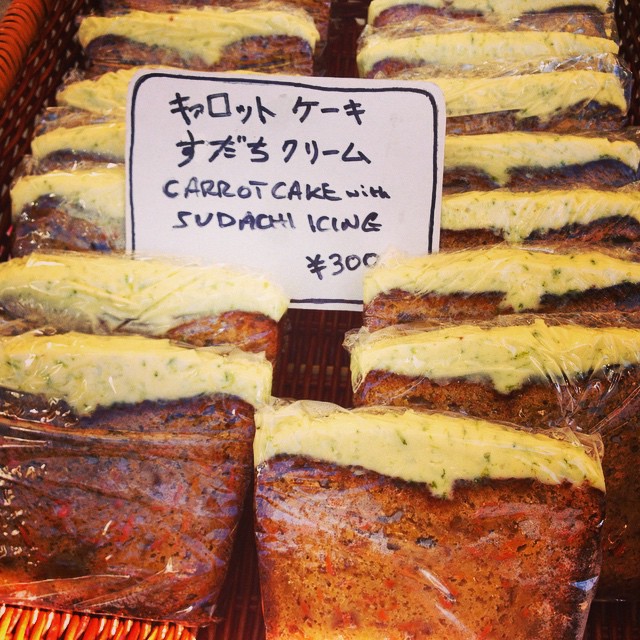 キャロット ケーキ
すだち クリーム
CARROT CAKE with
SUDACHI ICING
¥300